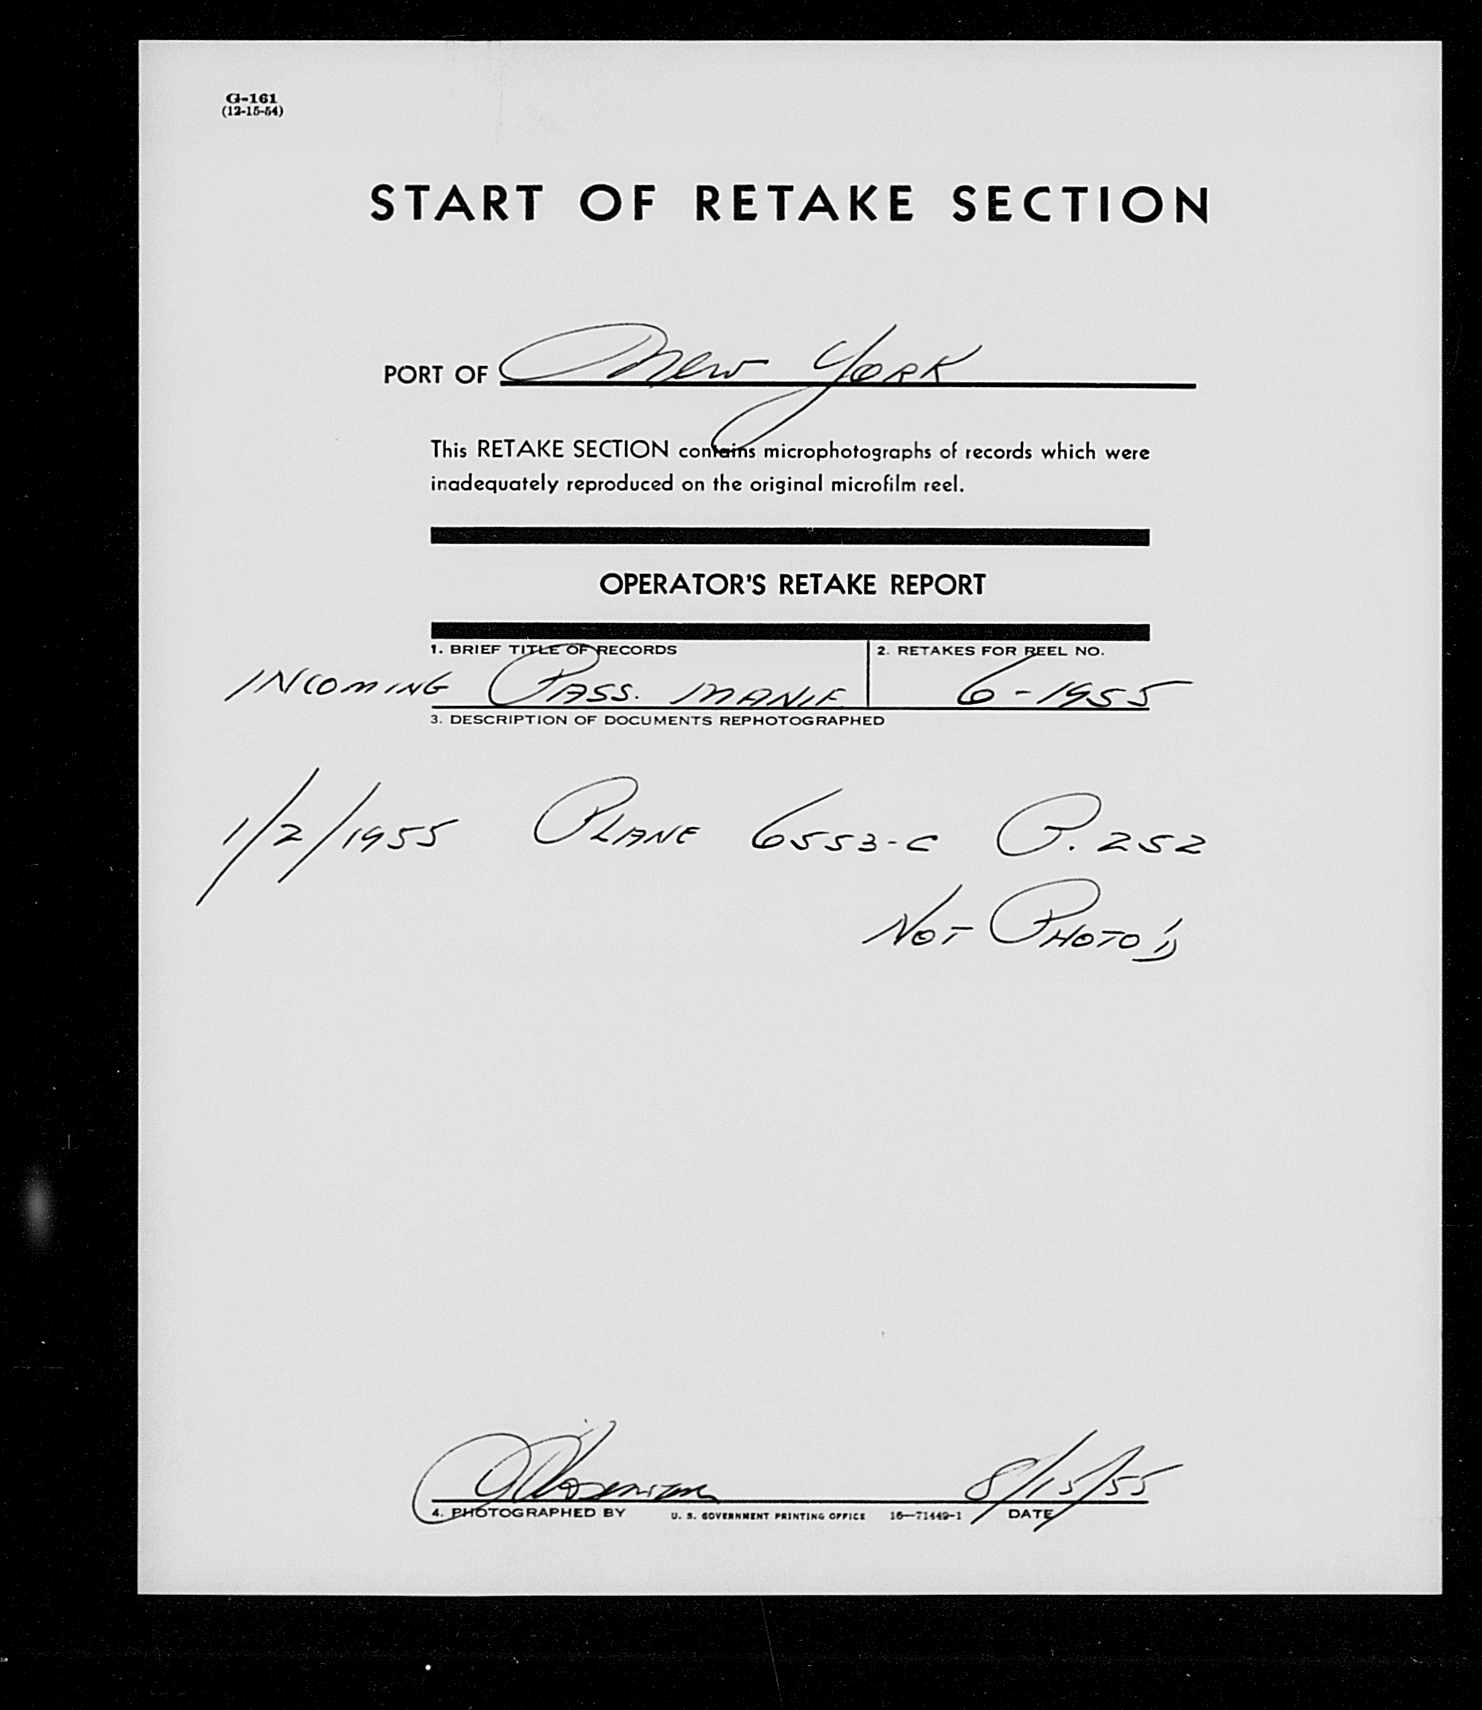 G-161
(12-15-54)
START OF RETAKE SECTION
PORT OF New York
This RETAKE SECTION contains microphotographs of records which were
inadequately reproduced on the original microfilm reel.
OPERATOR'S RETAKE REPORT
1. BRIEF TITLE OF RECORDS 2. RETAKES FOR REEL NO.
INCOMING PASS. MANIF. 6-1955
3. DESCRIPTION OF DOCUMENTS REPHOTOGRAPHED
1/2/1955 PLANE 6553-C P. 252
NOT PHOTO'D
8/15/55
4. PHOTOGRAPHED BY U. S. GOVERNMENT PRINTING OFFICE 16—71449-1 DATE